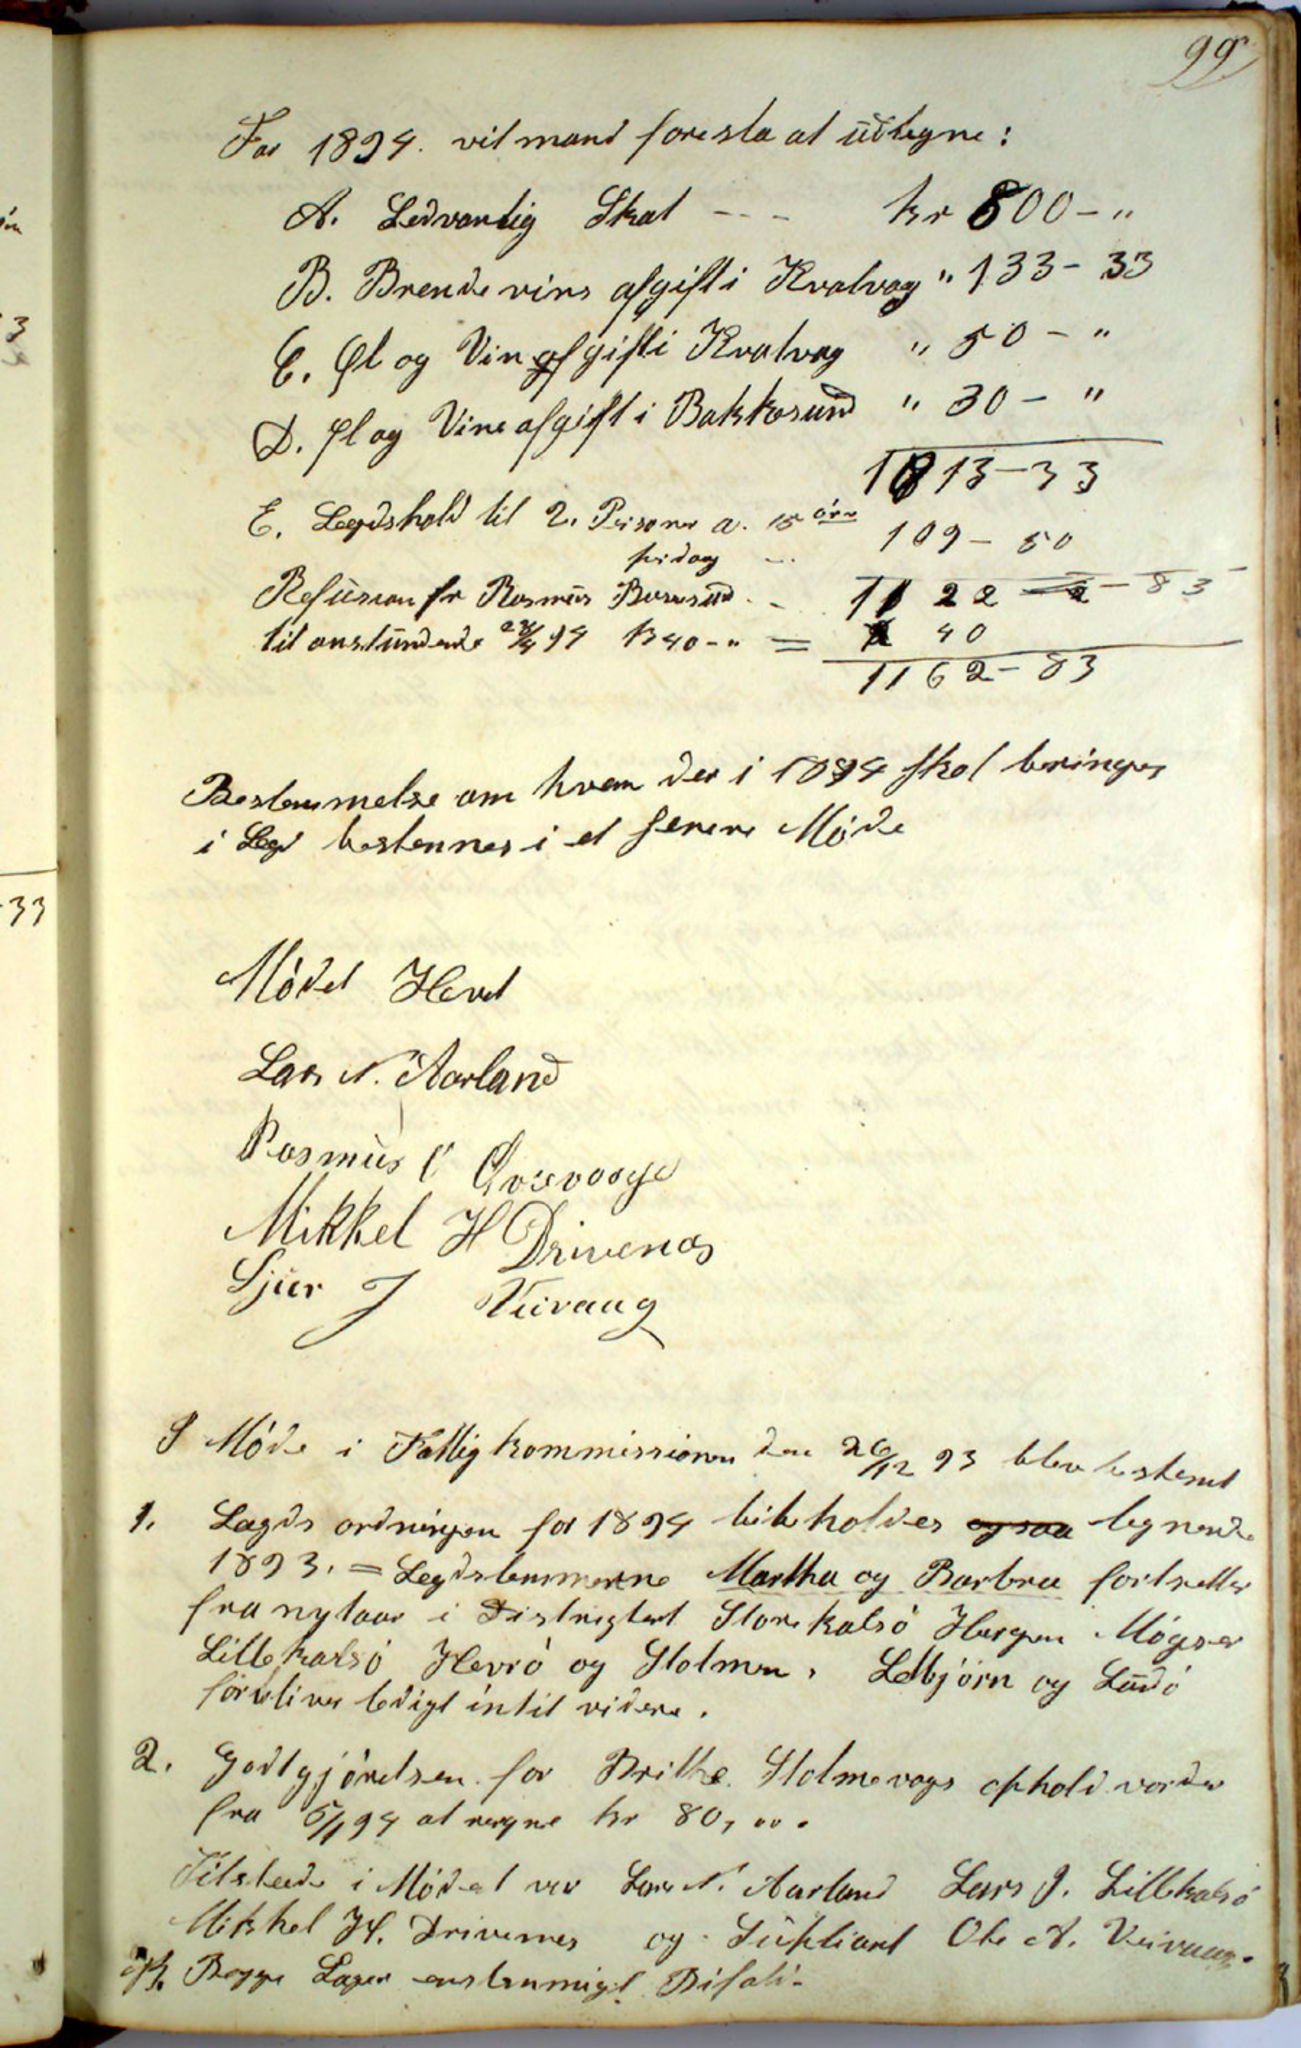 99
For 1894. vil mand foresla at üdlegne:
A. Sedvanlig Skat - - - kr 800 - "
B. Brendevins afgift i Kvalvag " 133 - 33
C. Øl og Vin afgift i Kvalvag " 50 - "
D. Øl og Vine afgift i Bakkesund " 30 - "
1013 - 33
E. Legdshold til 2. Personer a. 15 öre
109 - 50
prdag
Refüsion fr Rasmüs 1122 - 83
til anstündende 94 Kr 40 - " = 40
1162 - 83
Bestemmelse om hvem der i 1894 skal beringes
i Legd bestemmes i et senere Möde
Mödet Hevet
Lars N. Aarland
Rasmüs
Mikkel H Drivenes
Sjur J Veivaag
I Möde i Fattigkommissionen den 26/12 93 blev bestemt
1. Lægds ordningen for 1894 beibeholdes og saa lignende
1893. = Legdslemmerne Martha og Barbra fortsetter
fra nytaar i Distrigtet Storekalsö Horgen Mögser
Lillekalsö Hevrö og Stolmen. Selbjörn og
forbliver ledigt intil videre.
2. Godtgjörelsen for Brithe Stolmevags ophold vorder
fra 94 at regne kr 80,00.
Tilstede i Mödet var Lars N. Aarland Lars J. Lillekalsö
Mikkel H. Drivenes og Süpliant Ole A. Veivaag.
Begge Sager enstemmigt Bifald.